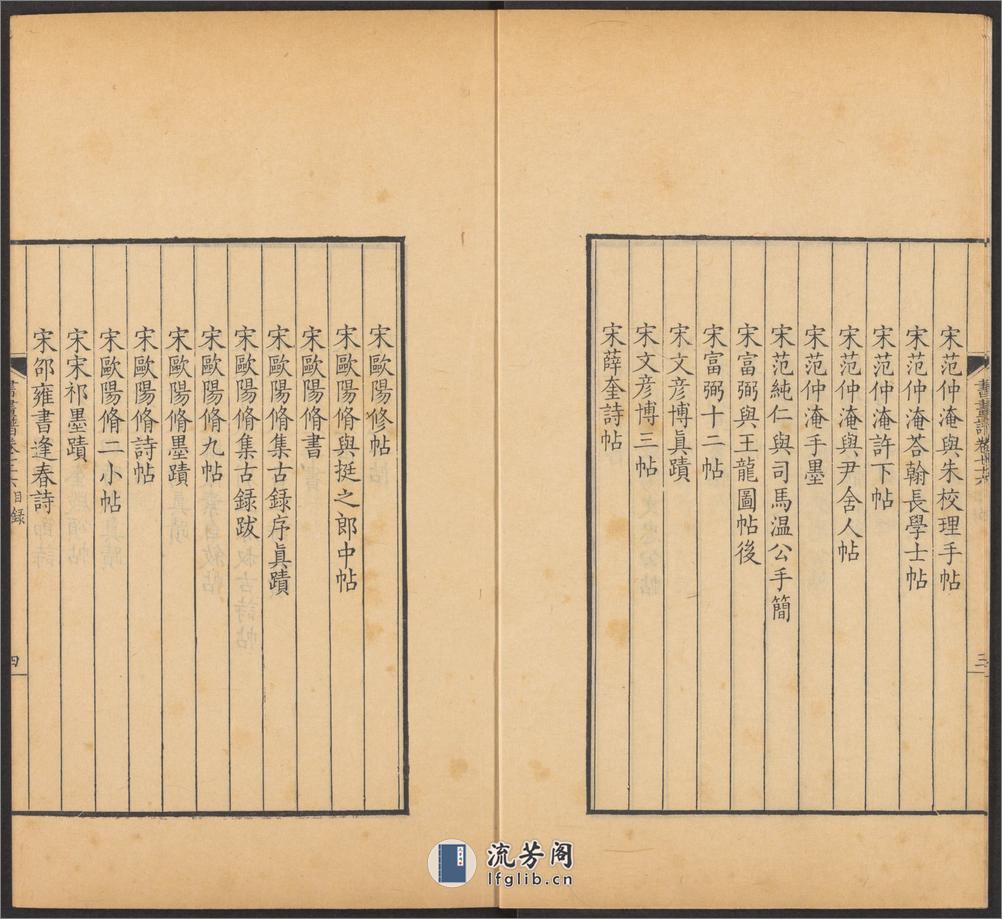 宋范仲淹與朱校理手帖
宋范仲淹荅翰長學士帖
宋范仲淹許下帖
宋范仲淹與尹舍人帖
宋范仲淹手墨
宋范純仁與司馬温公手簡
宋富弼與王龍圖帖後
宋富弼十二帖
宋文彦博眞蹟
宋文彦博三帖
宋薛奎詩帖
書畫譜
三
宋歐陽修帖
宋歐陽脩與挺之郎中帖
宋歐陽脩書
宋歐陽脩集古録序眞蹟
宋歐陽脩集古録跋
宋歐陽脩九帖
宋歐陽脩墨蹟
宋歐陽脩詩帖
宋歐陽脩二小帖
宋宋祁墨蹟
宋邵雍書逢春詩
目録
四
流芳阁
lfglib.cn